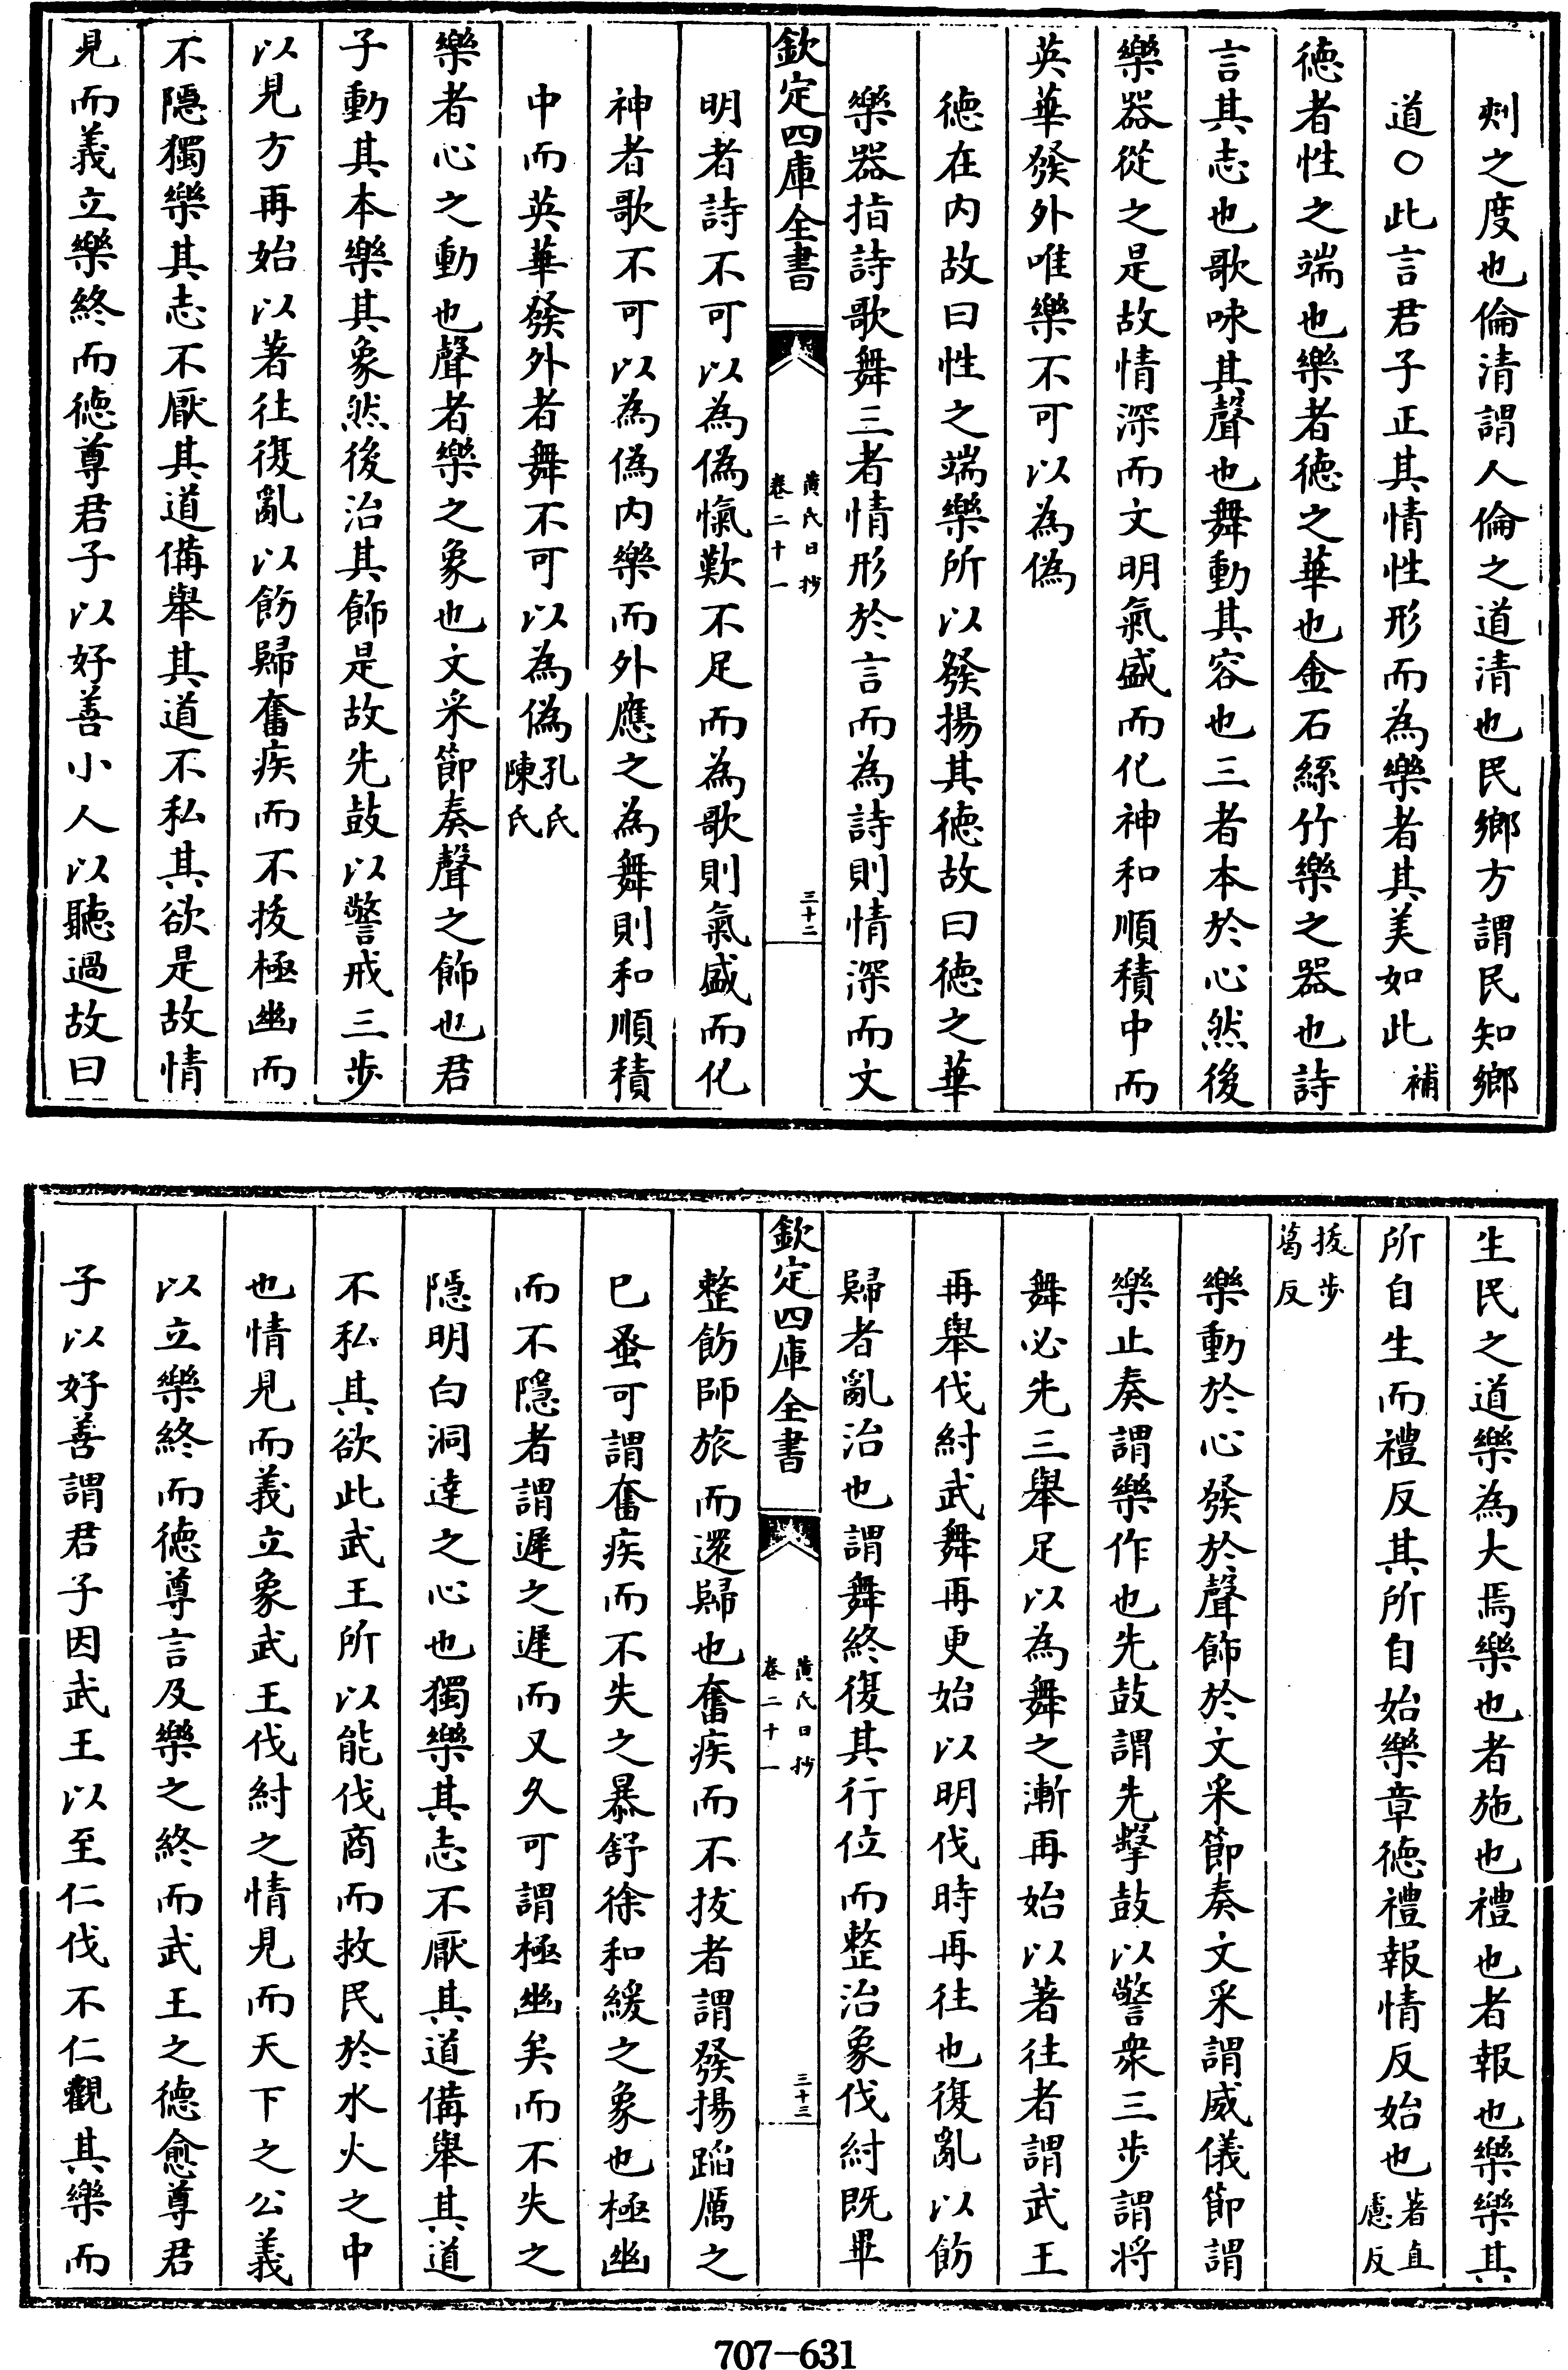 刻之度也倫清謂人倫之道清也民鄉方謂民知鄉
道○此言君子正其情性形而為樂者其美如此補
德者性之端也樂者德之華也金石絲竹樂之器也詩
言其志也歌咏其聲也舞動其容也三者本於心然後
樂器從之是故情深而文明氣盛而化神和順積中而
英華發外唯樂不可以為偽
德在内故曰性之端樂所以發揚其德故曰德之華
樂器指詩歌舞三者情形於言而為詩則情深而文
欽定四庫全書
黃氏日抄
卷二十一
三十二
明者詩不可以為偽愾歎不足而為歌則氣盛而化
神者歌不可以為偽内樂而外應之為舞則和順積
中而英華發外者舞不可以為偽孔氏陳氏
樂者心之動也聲者樂之象也文采節奏聲之飾也君
子動其本樂其象然後治其飾是故先鼓以警戒三步
以見方再始以著往復亂以飭歸奮疾而不拔極幽而
不隱獨樂其志不厭其道備舉其道不私其欲是故情
見而義立樂終而德尊君子以好善小人以聽過故曰
生民之道樂為大焉樂也者施也禮也者報也樂樂其
所自生而禮反其所自始樂章德禮報情反始也著直慮反
拔步葛反
樂動於心發於聲飾於文采節奏文采謂威儀節謂
樂止奏謂樂作也先鼓謂先擊鼓以警衆三步謂將
舞必先三舉足以為舞之漸再始以著往者謂武王
再舉伐紂武舞再更始以明伐時再往也復亂以飭
歸者亂治也謂舞終復其行位而整治象伐紂既畢
欽定四庫全書
黃氏日抄
卷二十一
三十三
整飭師旅而還歸也奮疾而不拔者謂發揚蹈厲之
已蚤可謂奮疾而不失之暴舒徐和緩之象也極幽
而不隱者謂遲之遲而又久可謂極幽矣而不失之
隱明白洞達之心也獨樂其志不厭其道備舉其道
不私其欲此武王所以能伐商而救民於水火之中
也情見而義立象武王伐紂之情見而天下之公義
以立樂終而德尊言及樂之終而武王之德愈尊君
子以好善謂君子因武王以至仁伐不仁觀其樂而
707-631